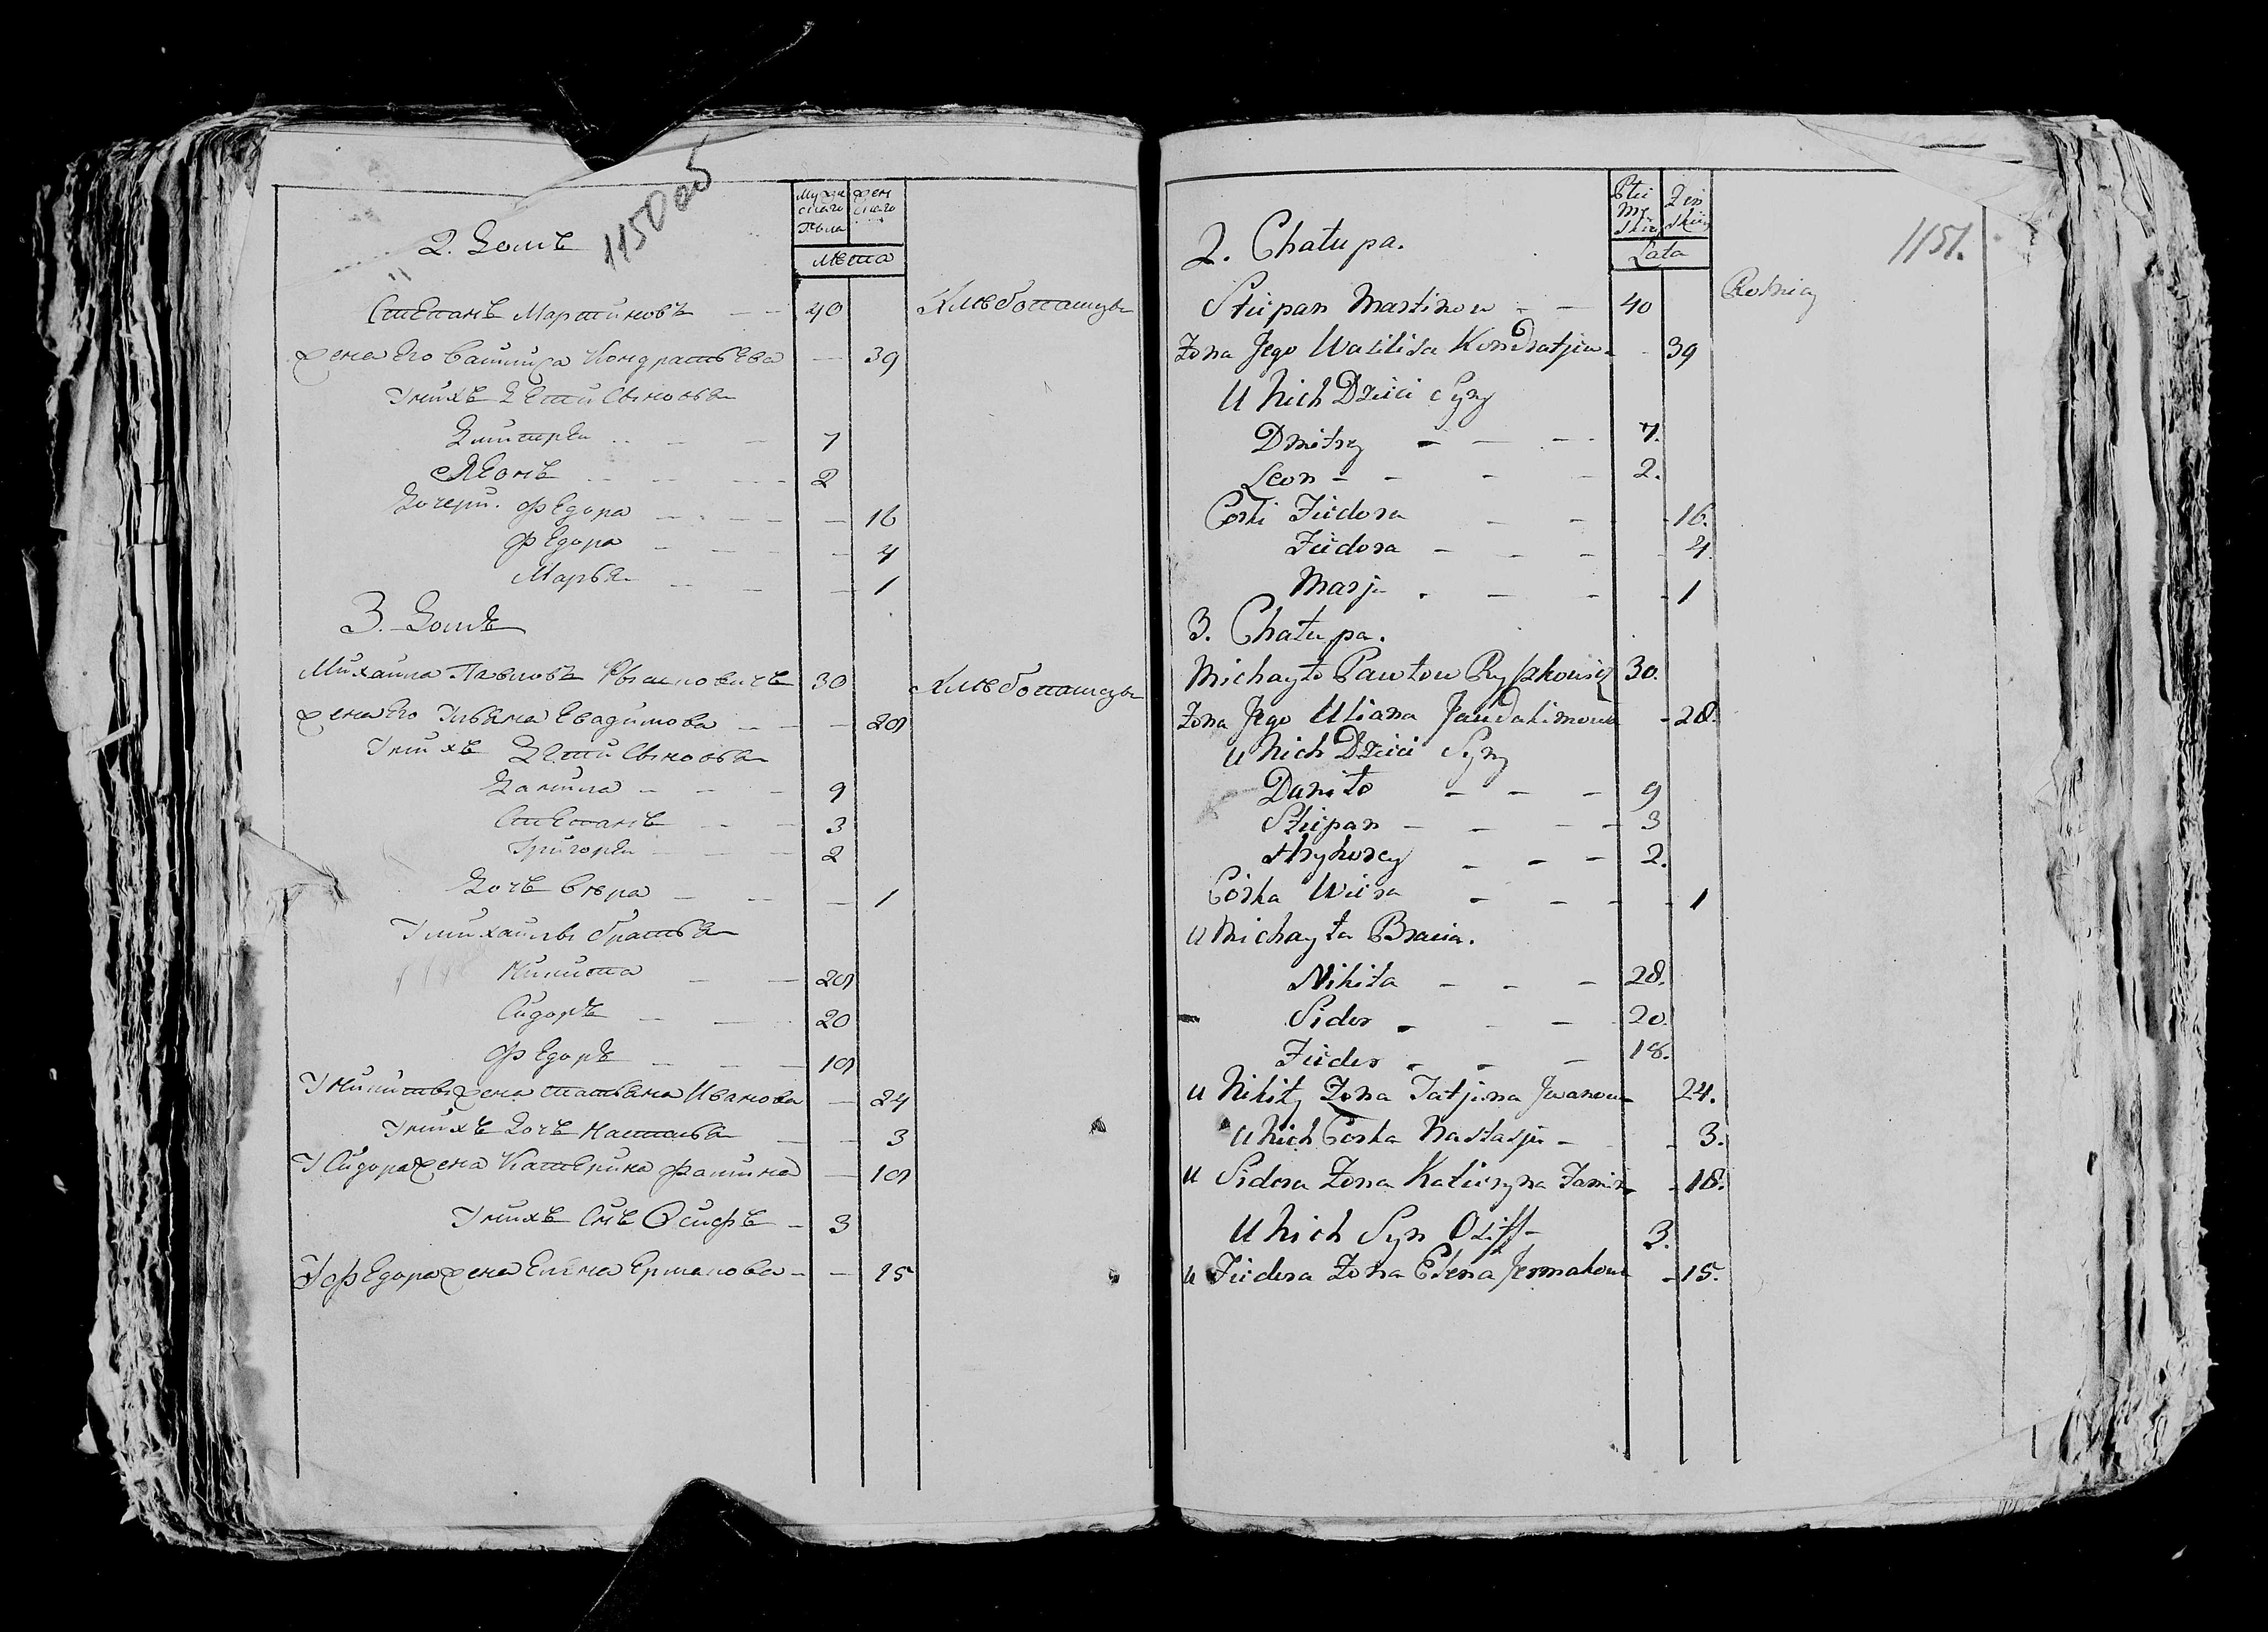 1150 об
Мужескаго пола
Женскаго
Лета
2. Домъ
Степанъ Мартиновъ 40
Хлебопашцы
Жена Его Василиса Кондратьева 39
У нихъ Дети Сыновья
Дмитрей 7
Леонъ 2
Дочери. Федора 16
Федора 4
Марья 1
3. Домъ
Михаила Павловъ Рышковичъ 30
Хлебопашцы
Жена Его Ульяна Евадимова 28
У нихъ Дети Сыновья
Данила 9
Степанъ 3
Григорей 2
Дочь Вера 1
У михайлы братья
Никита 28
Сидоръ 20
Федоръ 18
У Никиты жена татьяна Иванова 24
У нихъ Дочь Настасья 3
У Сидора жена Катерина Фамина 18
У нихъ Сынъ Осифъ 3
У Федора жена Елена Ермакова 15
1151.
Płci Męskiey
Żeńskiey
Lata
2. Chałupa.
Stiepan Martinow 40
Rolnicy
Żona Jego Wasilisa Kondratjewa 39
U Nich Dzieci Syny
Dmitry 7.
Leon 2.
Corki Fiedora 16.
Fiedora 4.
Marja 1
3. Chałupa.
Michayło Pawłow Ryszkowicz 30.
Żona Jego Uliana Jawdakimowa 28.
U Nich Dzieci Syny
Daniło 9
Stiepan 3
Hryhorey 2.
Córka Wiera 1
U Michayła Bracia.
Nikita 28.
Sidor 20.
Fiedor 18.
U Nikity Żona Tatjana Jwanowa 24.
U Nich Corka Nastasja 3.
U Sidora Żona Katieryna Famina 18.
U Nich Syn Osiff 3.
U Fiedora Żona Elena Jermakowa 15.